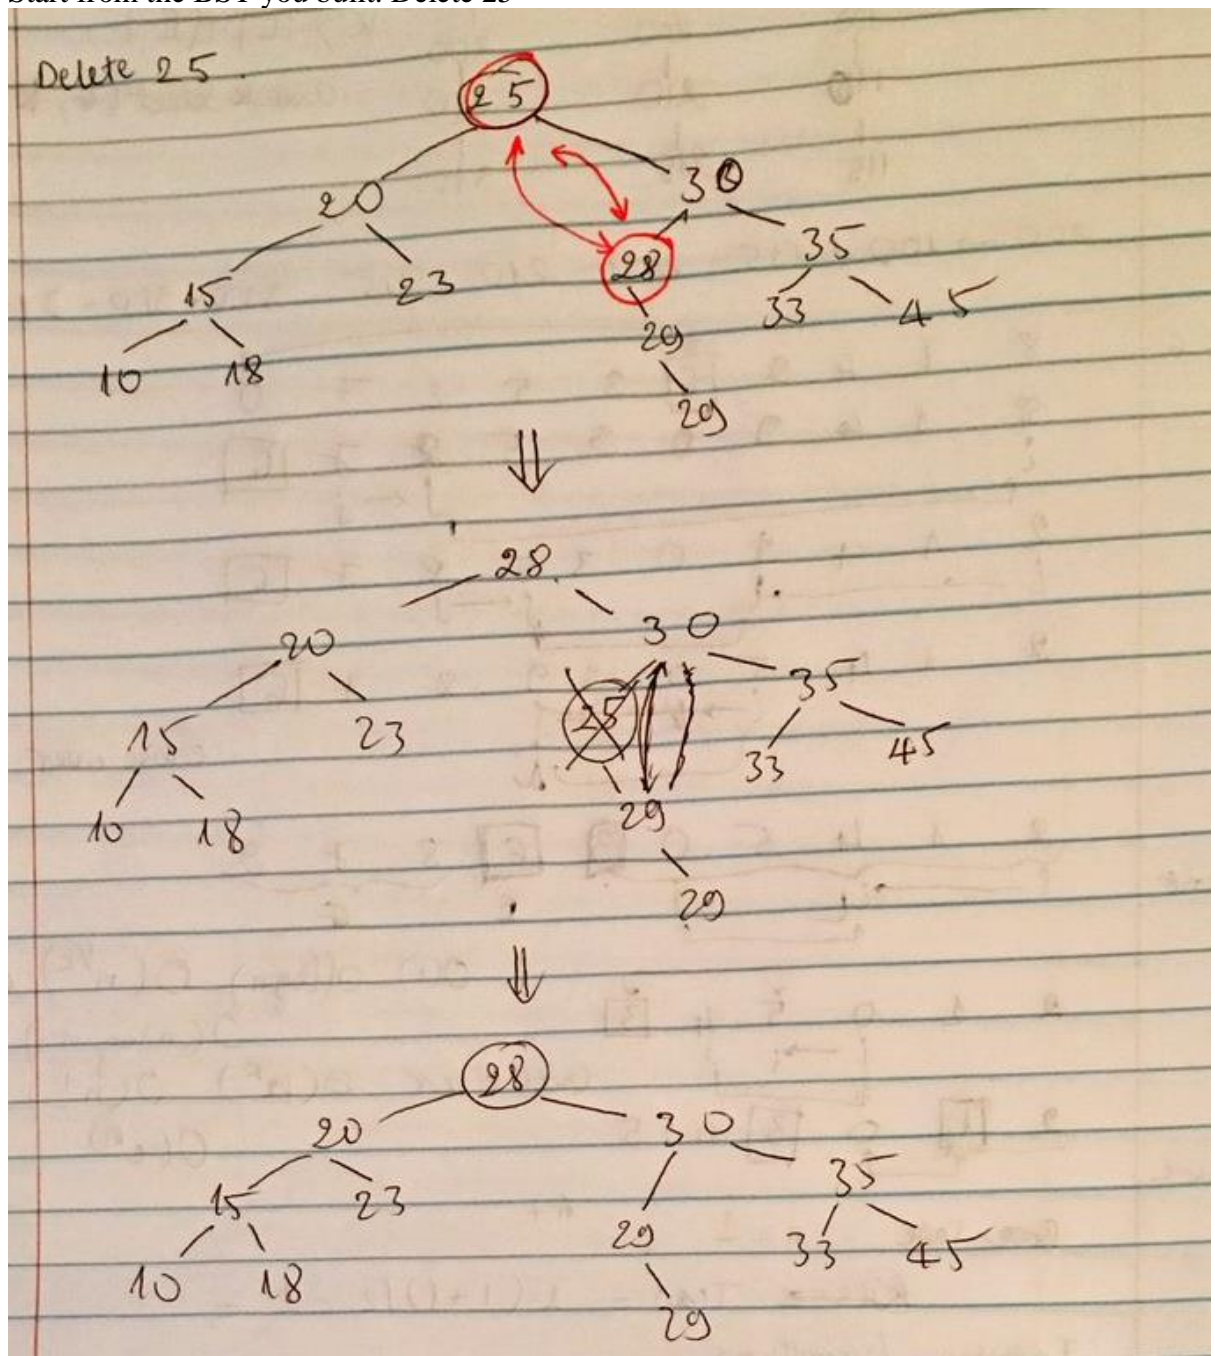 Start from the BST you built. Delete 25
Delete 25.
25
20 30
15 23 28 35
10 18 29 33 45
29
28
20 30
15 23 25 35
10 18 29 33 45
29
28
20 30
15 23 29 35
10 18 29 33 45